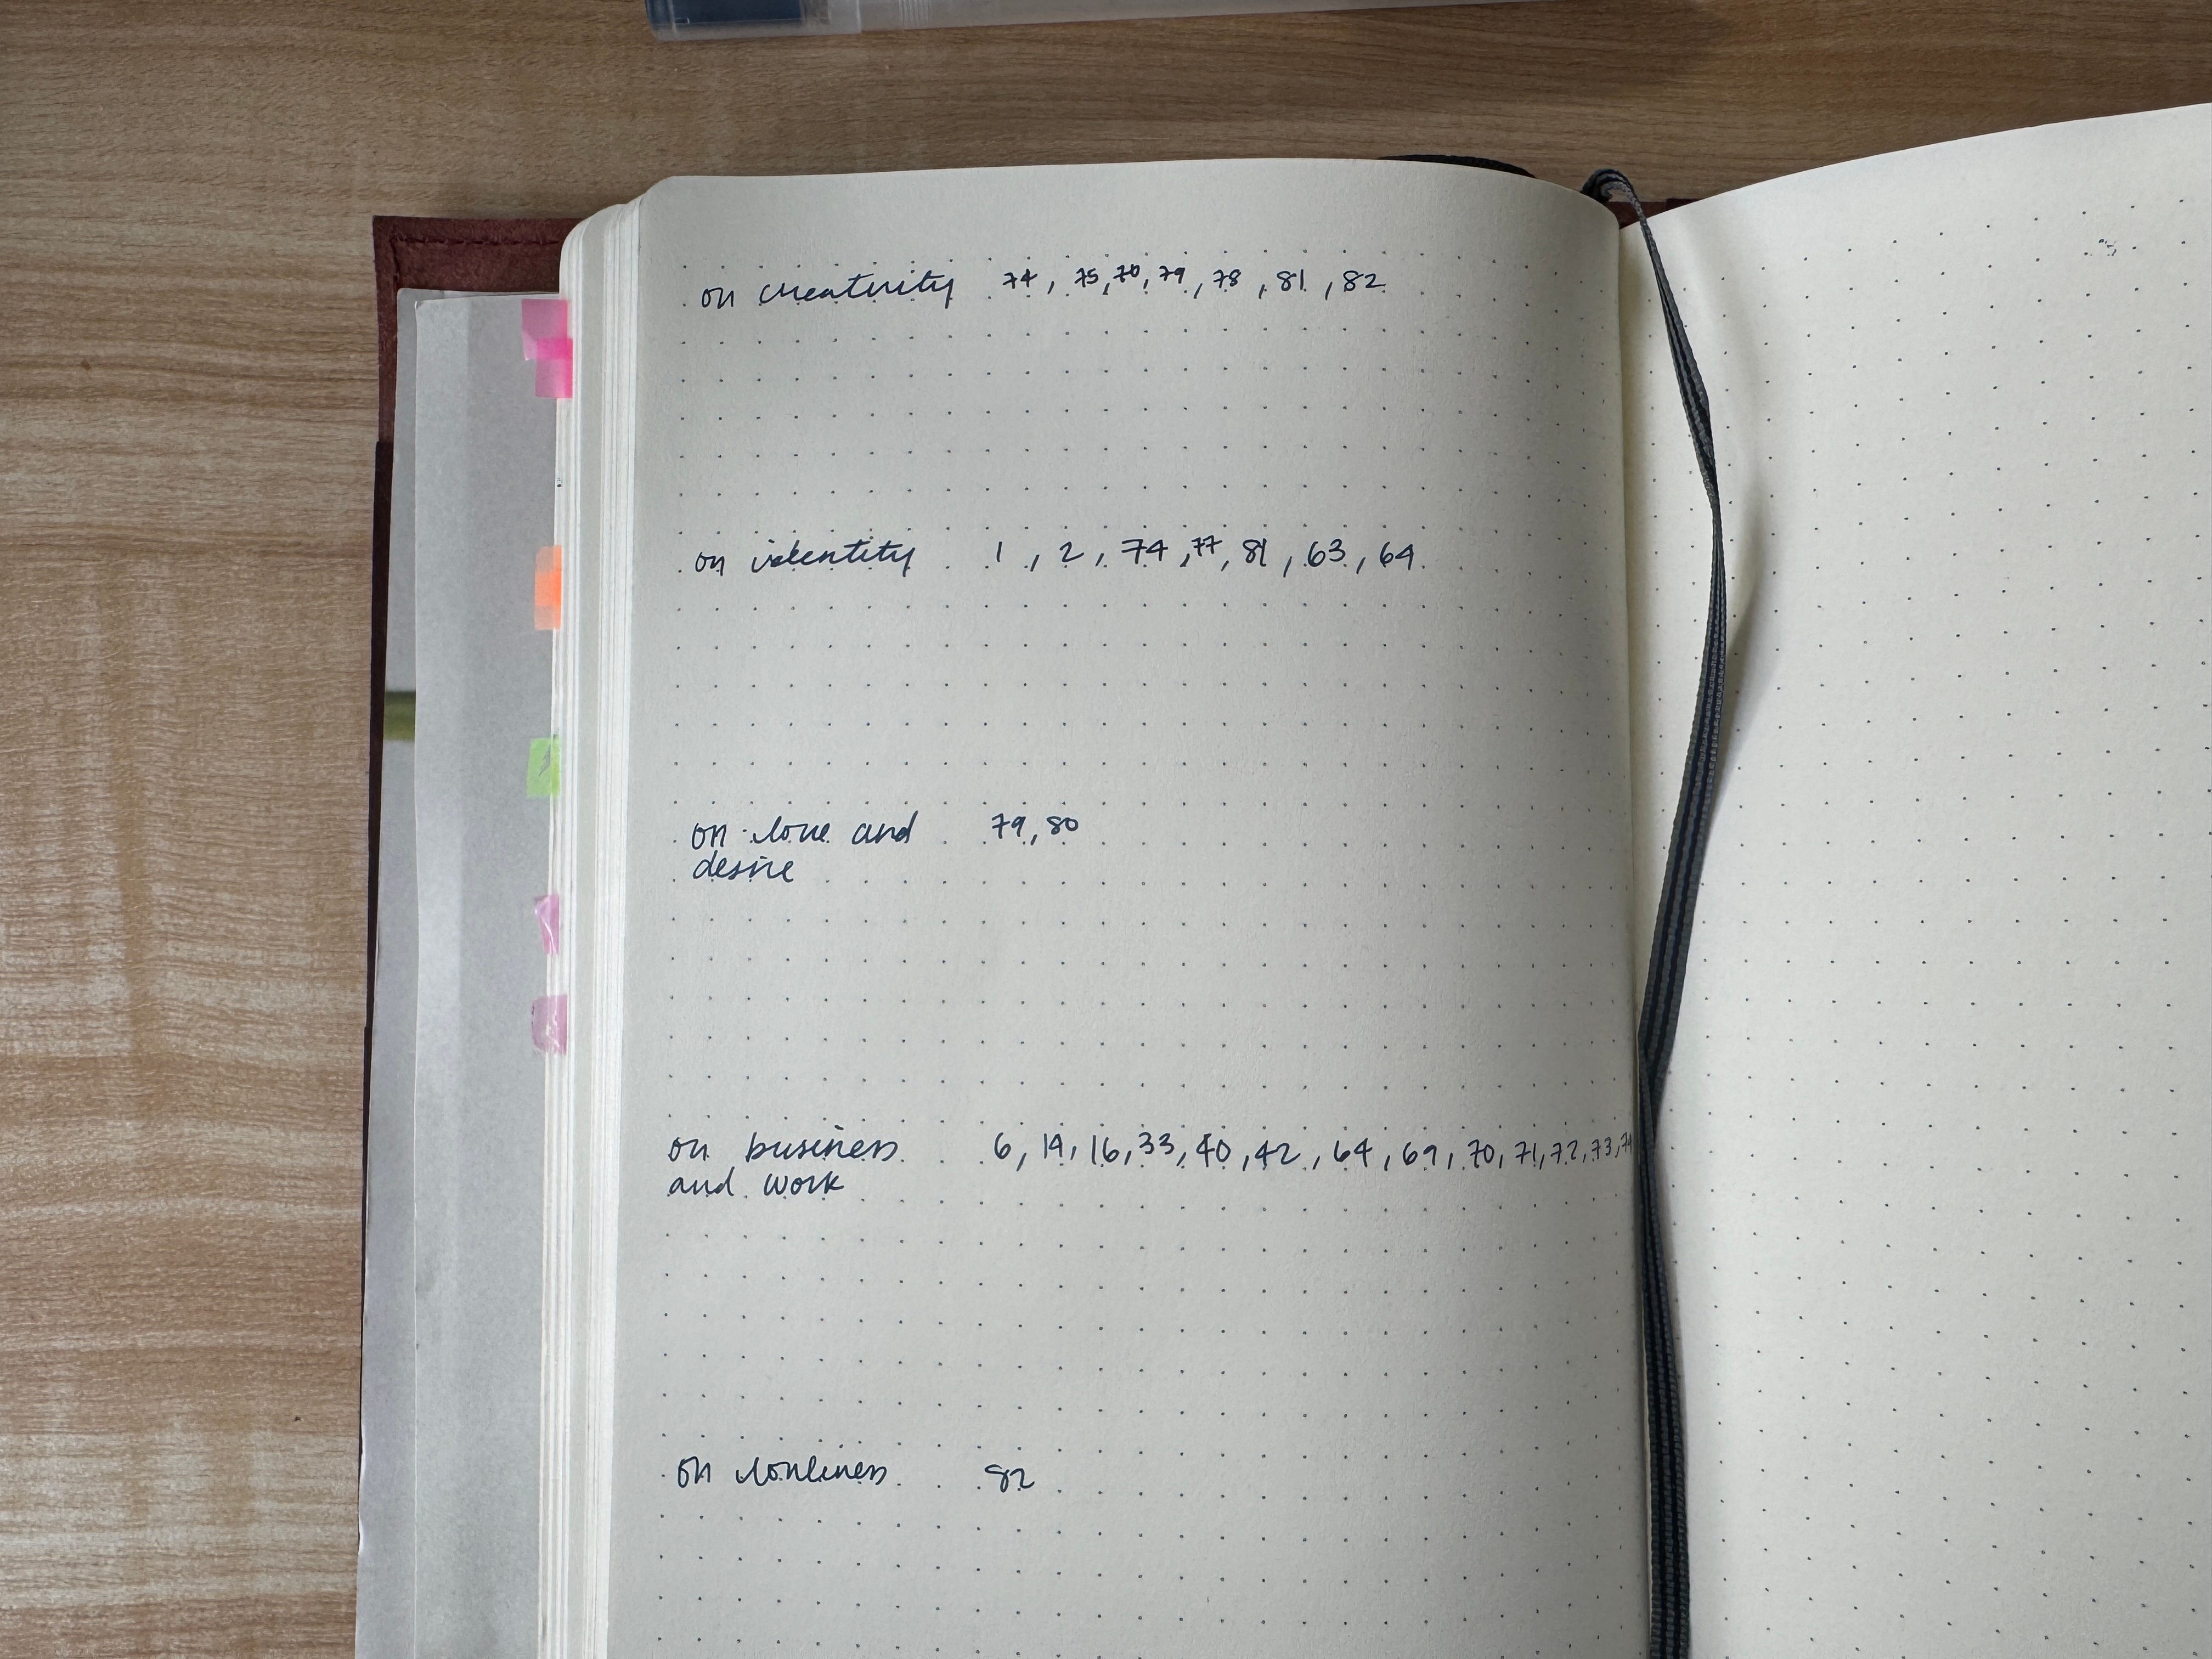 on creativity 74, 75, 70, 79, 78, 81, 82
on identity 1, 2, 74, 77, 81, 63, 64
on love and 79, 80
desire
on business 6, 14, 16, 33, 40, 42, 64, 69, 70, 71, 72, 73,
and work
on lonliness 82